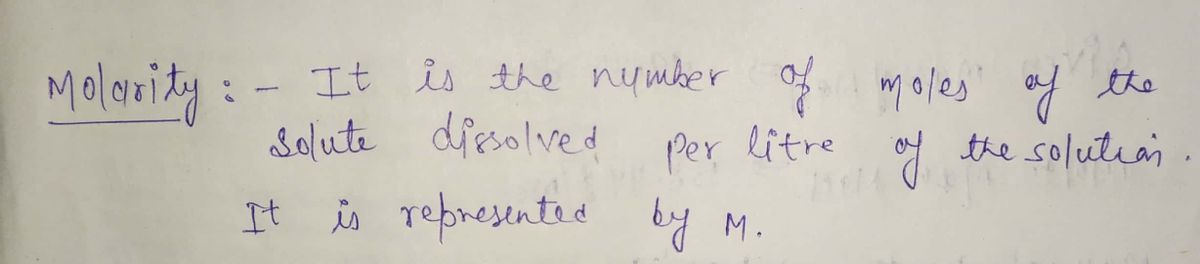 Molarity :- It is the number of moles of the
solute dissolved per litre of the solution.
It is represented by M.